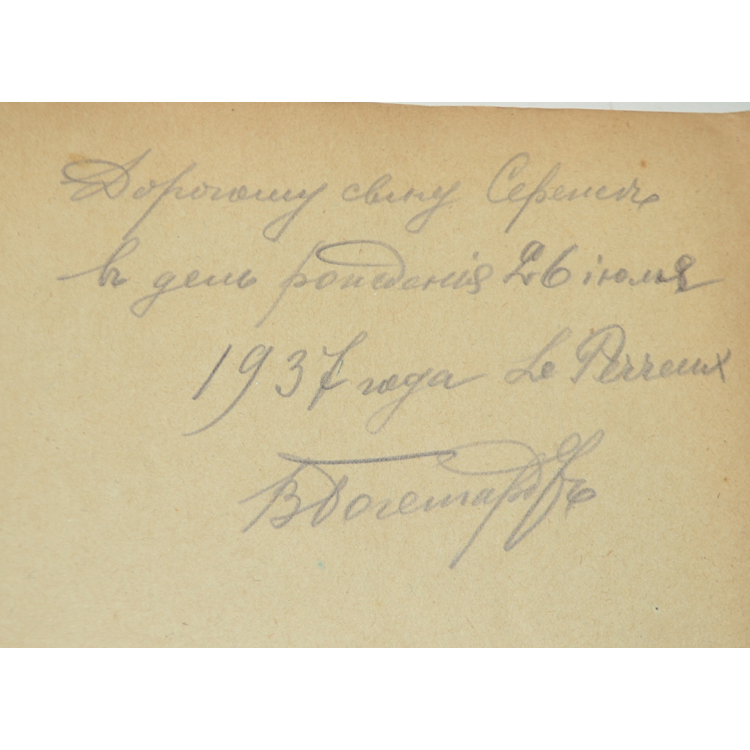 Дорогому сыну Сереже
въ день рожденія 26 іюля
1937 года Le Perreux